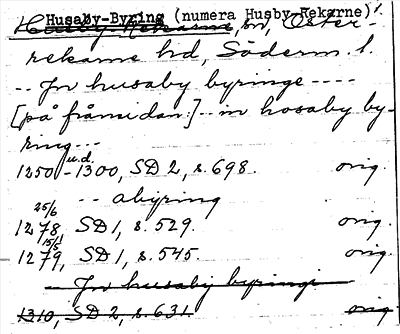 Husaby-Byring (numera Husby-Rekarne)!
Husby-Rekarne sn, Öster-
rekarne hd, Söderm. l.
-- Jn husaby byringe ----
[på framsidan:] -- in hosaby by-
ring ---
1250 - 1300, u.d. SD 2, s. 698. orig.
-- abyring
1278 25/6, SD 1, s. 529. orig.
1279 15/5, SD 1, s. 545. orig.
Jn husaby byringe
1310, SD 2, s. 631 orig.